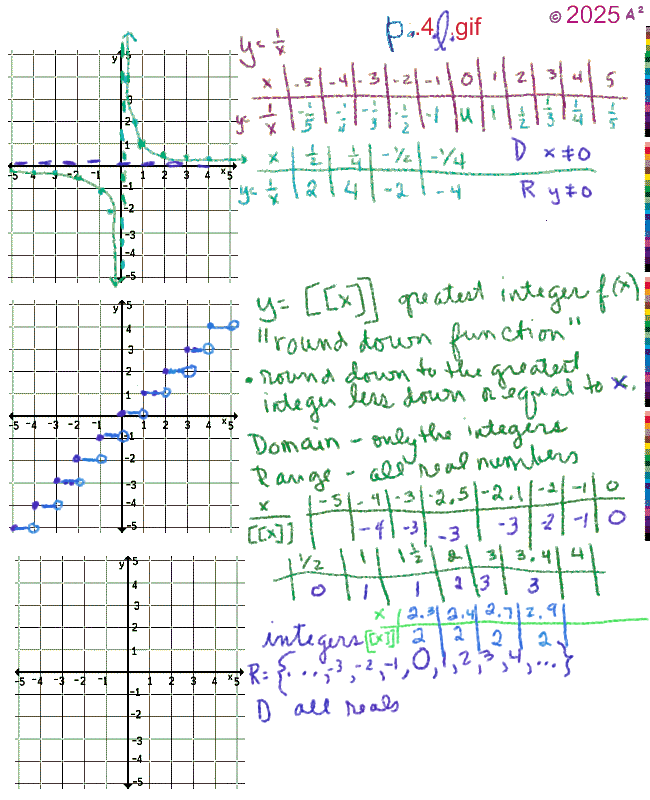 © 2025 A²
p.4l.gif
y = 1/x
x | -5 | -4 | -3 | -2 | -1 | 0 | 1 | 2 | 3 | 4 | 5
y= 1/x | -1/5 | -1/4 | -1/3 | -1/2 | -1 | u | 1 | 1/2 | 1/3 | 1/4 | 1/5
x | 1/2 | 1/4 | -1/2 | -1/4 D x≠0
y= 1/x | 2 | 4 | -2 | -4 R y≠0
y
5
3
2
1
-5 -4 -3 -2 -1 1 2 3 4 x 5
-1
-2
-3
-4
-5
y = [[x]] greatest integer f(x)
"round down function"
• round down to the greatest
integer less down or equal to x.
Domain - only the integers
Range - all real numbers
x | -5 | -4 | -3 | -2.5 | -2.1 | -2 | -1 | 0
[[x]] | | -4 | -3 | -3 | -3 | -2 | -1 | 0
1/2 | 1 | 1 1/2 | 2 | 3 | 3.4 | 4
0 | 1 | 1 | 2 | 3 | 3
x | 2.3 | 2.4 | 2.7 | 2.9
[[x]] | 2 | 2 | 2 | 2
integers
R = {..., -3, -2, -1, 0, 1, 2, 3, 4, ...}
D all reals
y
5
4
3
2
1
-5 -4 -3 -2 -1 1 2 3 4 x 5
-1
-2
-3
-4
-5
y
5
4
3
2
1
-5 -4 -3 -2 -1 1 2 3 4 x 5
-1
-2
-3
-4
-5